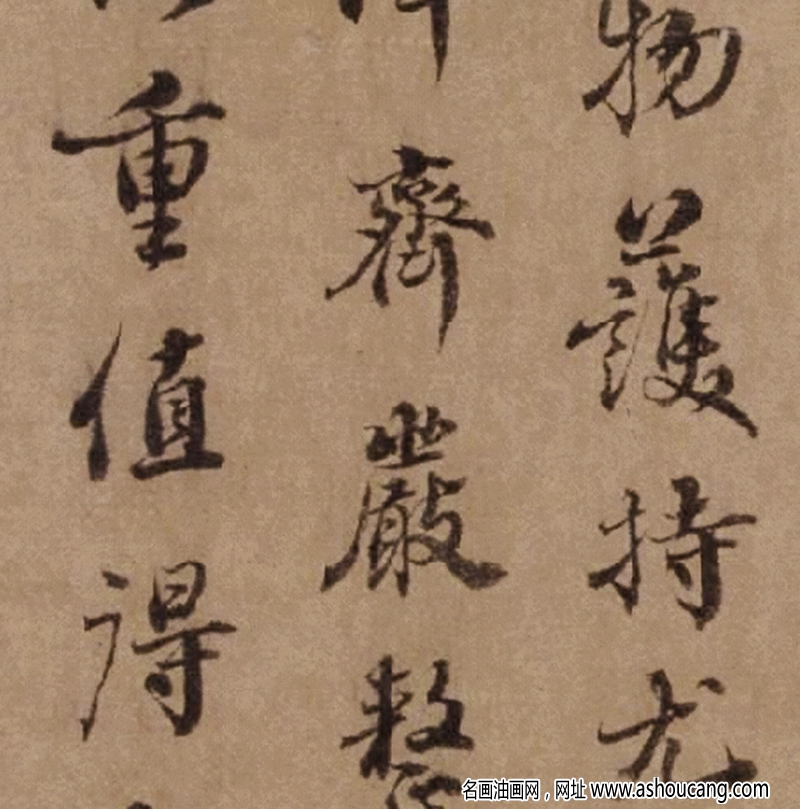 物護持尤
齊嚴整
重值得
名画油画网，网址 www.ashoucang.com